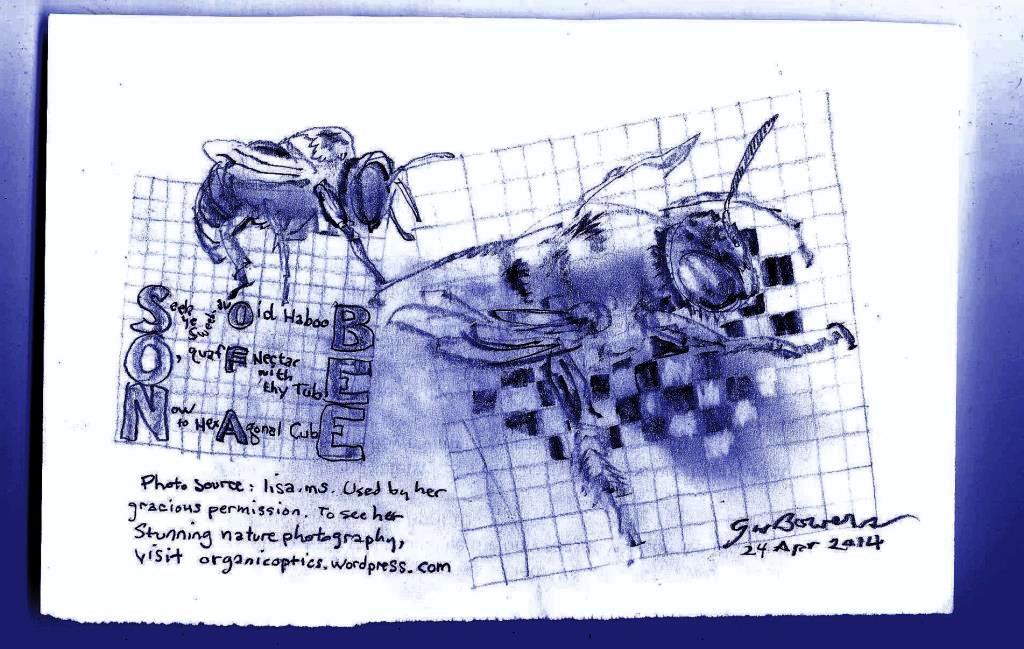 Seek ye Sweet Old HabooB
O, quaFf Nectar with thy TubE
Now to HexAgonal CubE
Photo Source: lisa.ms. Used by her
gracious permission. To see her
Stunning nature photography,
visit organicoptics.wordpress.com
GW Bowers
24 Apr 2014